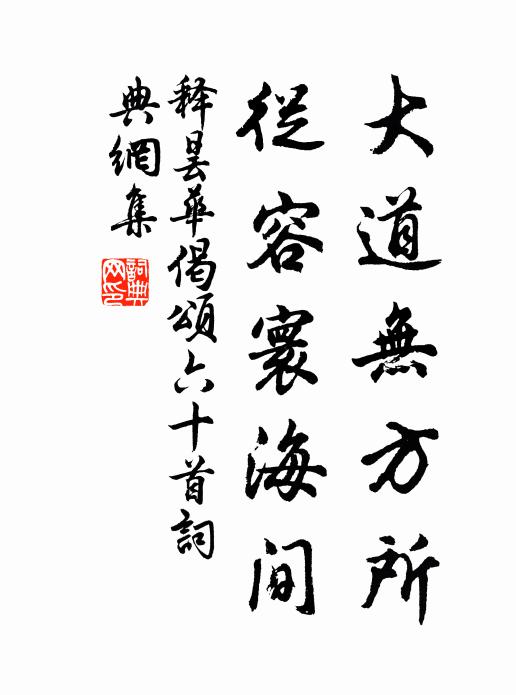 大道無方所
從容寰海間
释昙華偈頌六十首詞
典網集
詞典网印